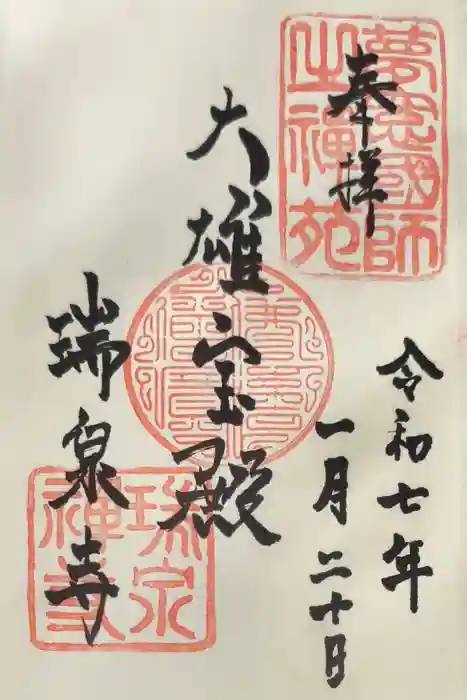 奉拝
夢窓國師
之禅苑
令和七年
一月二十日
大雄宝殿
瑞泉寺
瑞泉
禅寺